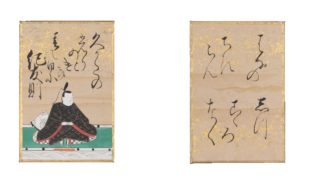 久かたの
ひかり
のとけき
春の日に
紀友則
しつ
こゝろ
なく
はなの
ちる
らん